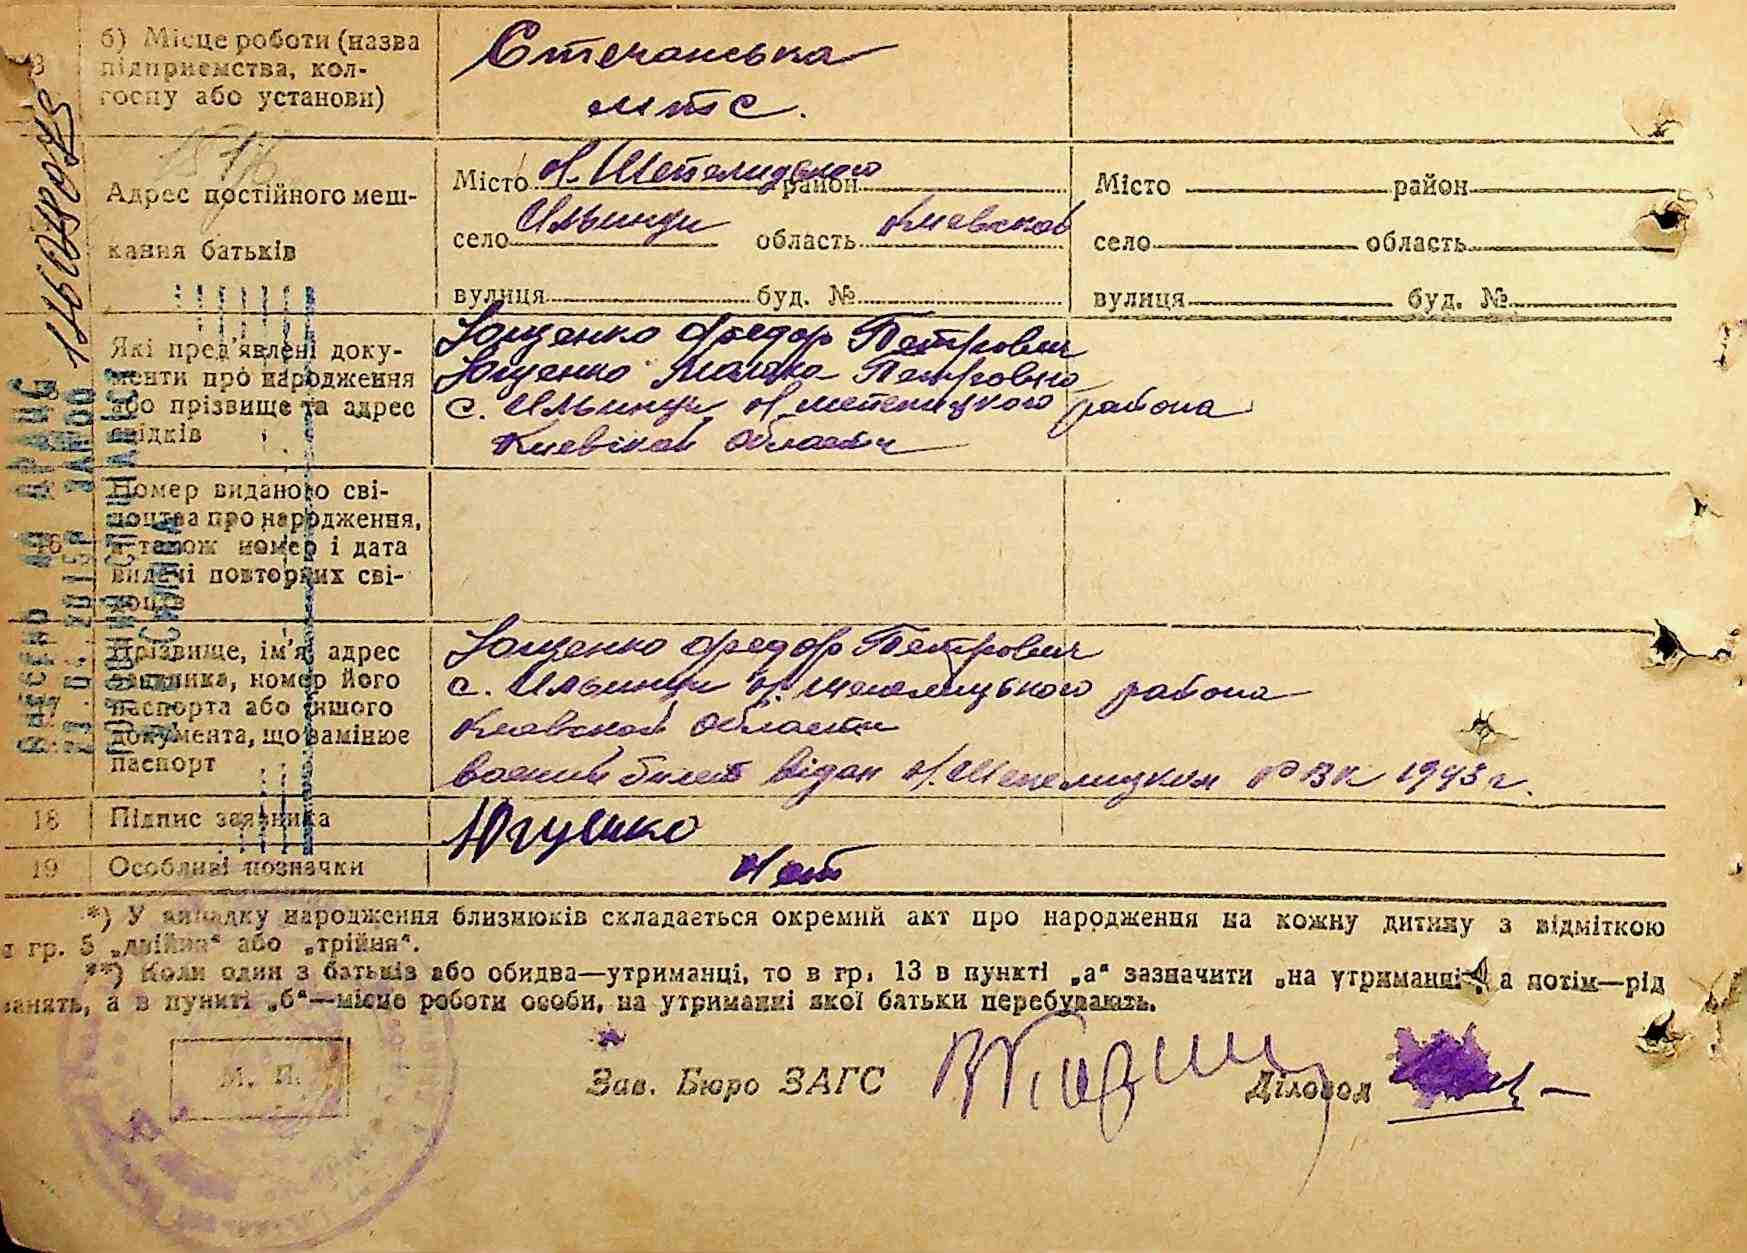 б) Місце роботи (назва
підприємства, кол-
госпу або установи)
Стечанська
мтс.
Адрес постійного меш-
кання батьків
Місто Н. Шепелицького район
село Ильинци область Киевской
вулиця буд. №
Місто район
село область
вулиця буд. №
Які пред'явлені доку-
менти про народження
або прізвище та адрес
свідків
Ющенко Федор Петрович
Ющенко Петровна
с. Ильинци Н. Шепелицкого района
Киевской Области
Номер виданого сві-
доцтва про народження,
а також номер і дата
видачі повторних сві-
доцтв
17
Прізвище, ім'я, адрес
заявника, номер його
паспорта або іншого
документа, що замінює
паспорт
Ющенко Федор Петрович
с. Ильинци Н. Шепелицького района
Киевской Области
воений билет відан Н. Шепелицким РВК 1943 г.
18 Підпис заявника
19 Особливі позначки
Нет
*) У випадку народження близнюків складається окремий акт про народження на кожну дитину з відміткою
в гр. 5 „двійня“ або „трійня“.
**) Коли один з батьків або обидва—утриманці, то в гр. 13 в пункті „а“ зазначити „на утриманні“, а потім—рід
занять, а в пункті „б“—місце роботи особи, на утриманні якої батьки перебувають.
М. П.
Зав. Бюро ЗАГС
Діловод